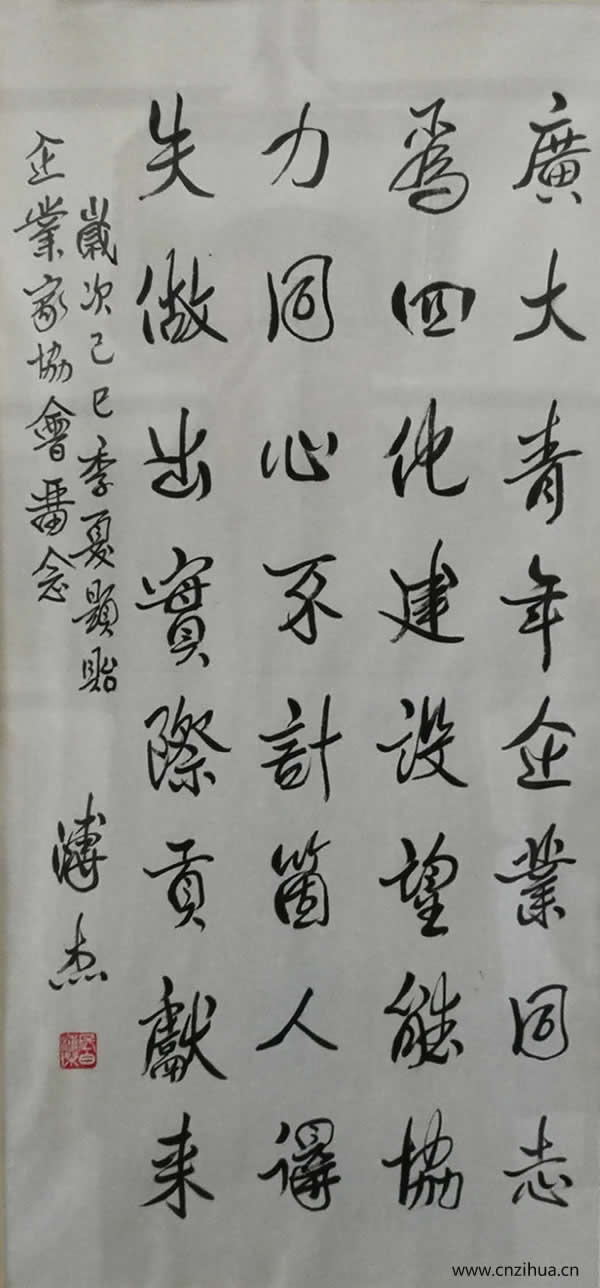 廣大青年企業同志
為四化建設望能協
力同心不計箇人得
失做出實際貢獻来
歲次己巳季夏題貽
企業家協會畱念
溥杰
www.cnzihua.cn